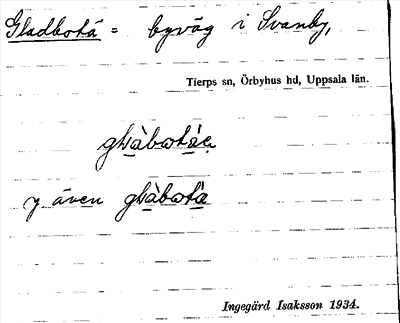 Gladbotä = byväg i Svanby,
Tierps sn, Örbyhus hd, Uppsala län.
y även
Ingegärd Isaksson 1934.